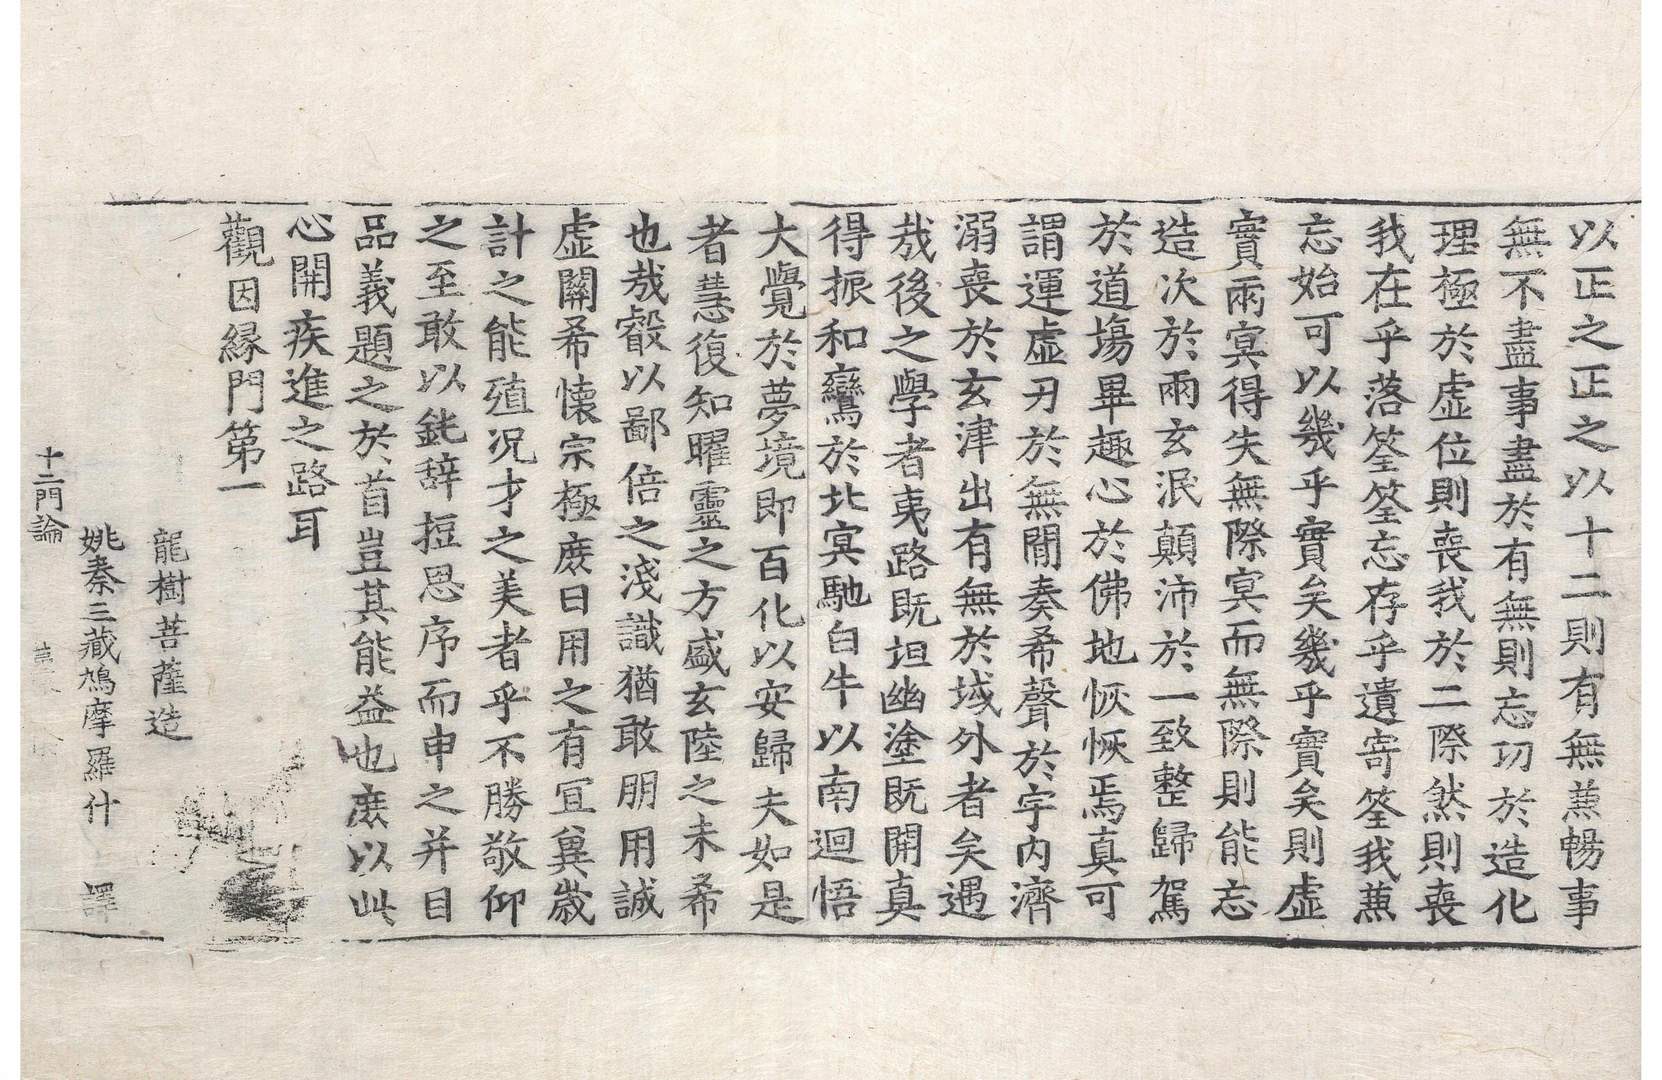 以正之正之以十二則有無蕪暢事
無不盡事盡於有無則忘功於造化
理極於虛位則喪我於二際然則喪
我在乎落筌筌忘存乎遺寄筌我蕪
忘始可以幾乎實矣幾乎實矣則虛
實兩冥得失無際冥而無際則能忘
造次於兩玄泯顛沛於一致整歸駕
於道塲畢趣心於佛地恢恢焉真可
謂運虛刃於無閒奏希聲於宇內濟
溺喪於玄津出有無於域外者矣遇
哉後之學者夷路旣坦幽塗旣開真
得振和鸞於北冥馳白牛以南迴悟
大覺於夢境即百化以安歸夫如是
者慧復知曜靈之方盛玄陸之未希
也哉叡以鄙倍之淺識猶敢朋用誠
虛關希懷宗極庶日用之有冝冀歲
計之能殖况才之美者乎不勝敬仰
之至敢以鈍辞短思序而申之并目
品義題之於首豈其能益也庶以此
心開疾進之路耳
觀因縁門第一
龍樹菩薩造
姚秦三藏鳩摩羅什 譯
十二門論